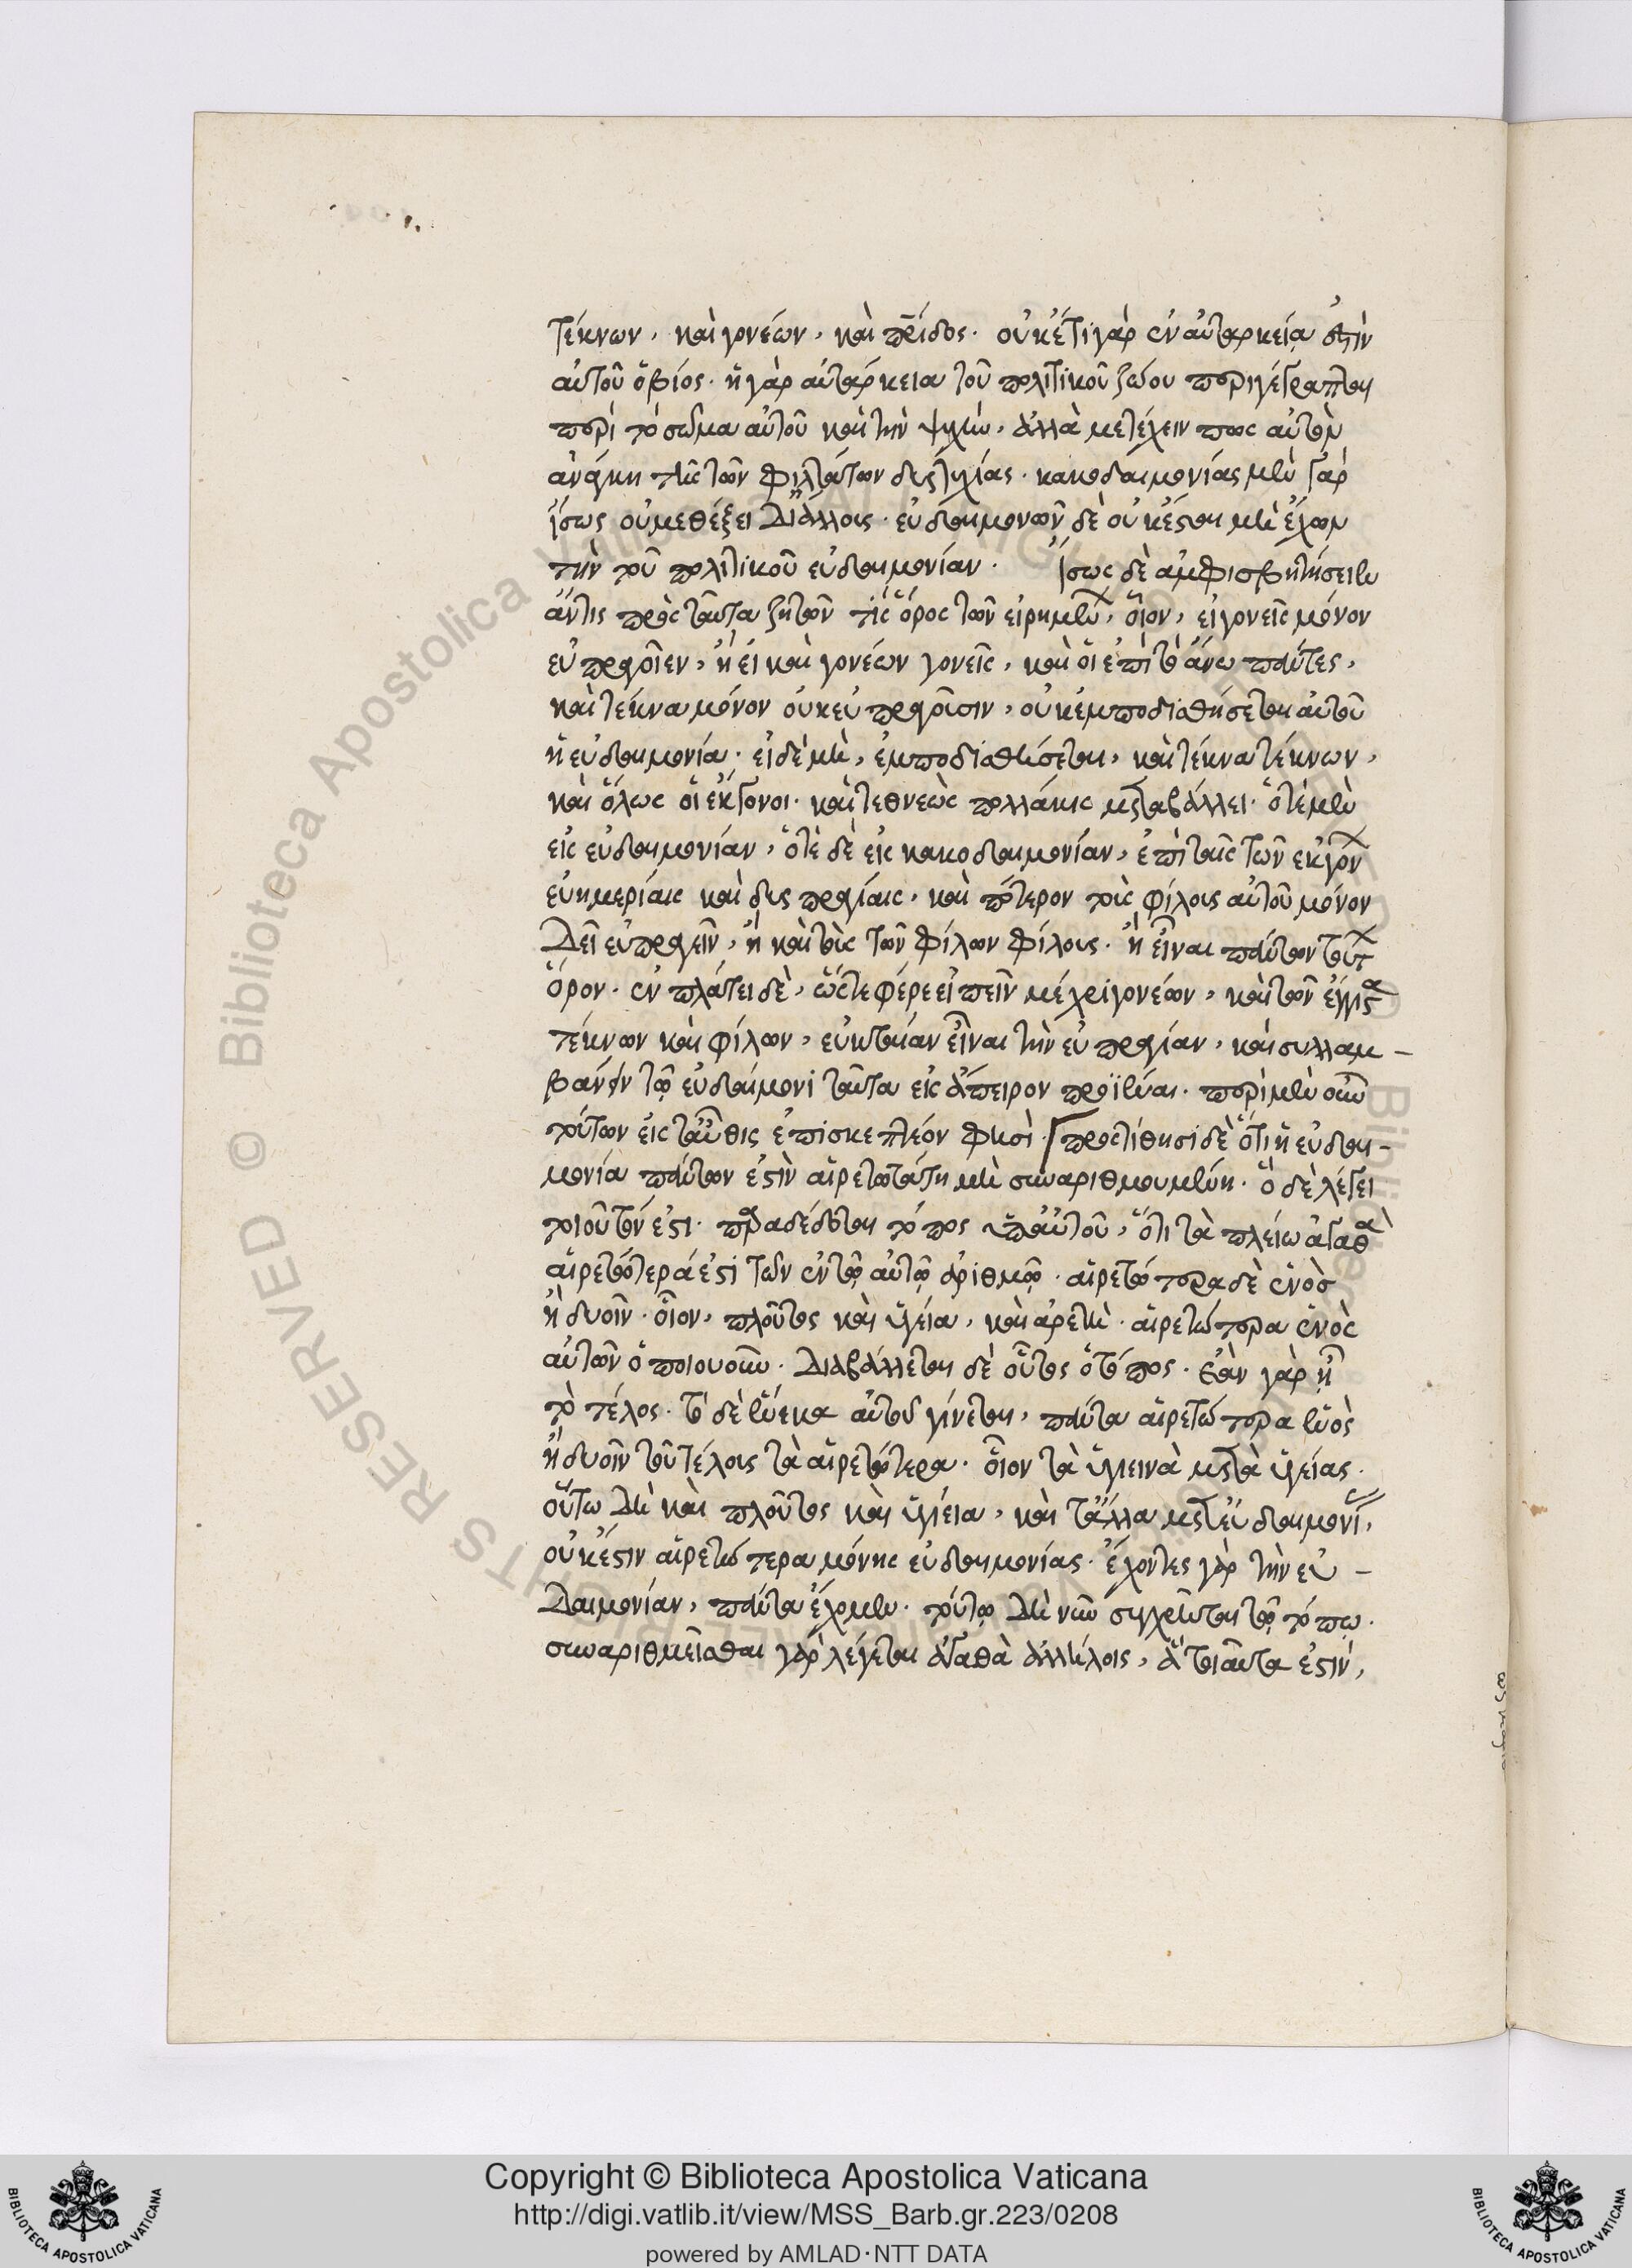 τέκνων, καὶ γονέων, καὶ πρίδος. οὐκέτι γὰρ ἐν αὐταρκείᾳ ἐστὶν
αὐτοῦ ὁ βίος. ἡ γὰρ αὐτάρκεια τοῦ πολιτικοῦ ζώου περιγέγραπται
περὶ τὸ σῶμα αὐτοῦ καὶ τὴν ψυχὴν, ἀλλὰ μετέχειν πως αὐτὸν
ἀνάγκη τῆς τῶν φιλτάτων δυστυχίας. κακοδαιμονίας μὲν γὰρ
ἴσως οὐ μεθέξει δι' ἄλλους. εὐδαιμονῶν δὲ οὐκ ἔσται μὴ ἔχων
τὴν τοῦ πολιτικοῦ εὐδαιμονίαν. Ἴσως δὲ ἀμφισβητήσειεν
ἄν τις πρὸς ταῦτα ζητῶν τίς ὅρος τῶν εἰρημένων, οἷον, εἰ γονεῖς μόνον
εὐπραγοῖεν, ἢ εἰ καὶ γονέων γονεῖς, καὶ οἱ ἐπὶ τὸ ἄνω πάντες,
καὶ τέκνα μόνον οὐκ εὐπραγοῦσιν, οὐκ ἐμποδισθήσεται αὐτοῦ
ἡ εὐδαιμονία. εἰ δὲ μὴ, ἐμποδισθήσεται, καὶ τέκνα τέκνων,
καὶ ὅλως οἱ ἔκγονοι. καὶ τεθνεὼς πολλάκις μεταβάλλει. ὁτὲ μὲν
εἰς εὐδαιμονίαν, ὁτὲ δὲ εἰς κακοδαιμονίαν, ἐπὶ ταῖς τῶν ἐκγόνων
εὐημερίαις καὶ δυσπραγίαις. καὶ πότερον τοὺς φίλους αὐτοῦ μόνον
δεῖ εὐπραγεῖν, ἢ καὶ τοὺς τῶν φίλων φίλους. ἢ εἶναι πάντων τοῦτον
ὅρον. ἐν πλάτει δὲ, ὥστε φέρε εἰπεῖν μέχρι γονέων, καὶ τῶν ἔγγιστα
τέκνων καὶ φίλων, εὐκταίαν εἶναι τὴν εὐπραγίαν, καὶ συλλαμ-
βάνειν τῷ εὐδαίμονι ταῦτα εἰς ἄπειρον προϊέναι. περὶ μὲν οὖν
τούτων εἰς ταῦθις ἐπισκεπτέον φησὶ. προστίθησι δὲ ὅτι ἡ εὐδαι-
μονία πάντων ἐστὶν αἱρετωτάτη μὴ συναριθμουμένη. ὃ δὲ λέγει
τοιοῦτόν ἐστι. παραδέδοται τόπος ὑπ' αὐτοῦ, ὅτι τὰ πλείω ἀγαθὰ
αἱρετώτερά ἐστι τῶν ἐν τῷ αὐτῷ ἀριθμῷ. αἱρετώτερα δὲ ἑνὸς
ἢ δυοῖν. οἷον, πλοῦτος καὶ ὑγεία, καὶ ἀρετὴ. αἱρετώτερα ἑνὸς
αὐτῶν ὁποιουοῦν. Διαβάλλεται δὲ οὗτος ὁ τόπος. ἐὰν γὰρ ᾖ
τὸ τέλος. τὸ δὲ ἕνεκα αὐτοῦ γίνεται, πάντα αἱρετώτερα ἑνὸς
ἢ δυοῖν τοῦ τέλους τὰ αἱρετώτερα. οἷον τὰ ὑγιεινὰ μετὰ ὑγείας.
οὕτω δὴ καὶ πλοῦτος καὶ ὑγίεια, καὶ τἄλλα μετ' εὐδαιμονίας,
οὐκ ἔστιν αἱρετώτερα μόνης εὐδαιμονίας. ἔχοντες γὰρ τὴν εὐ-
δαιμονίαν, πάντα ἔχομεν. τούτῳ δὴ νῦν συγχρῆται τῷ τόπῳ.
συναριθμεῖσθαι γὰρ λέγεται ἀγαθὰ ἀλλήλοις, ἃ τοιαῦτα ἐστὶν,
Copyright © Biblioteca Apostolica Vaticana
http://digi.vatlib.it/view/MSS_Barb.gr.223/0208
powered by AMLAD·NTT DATA